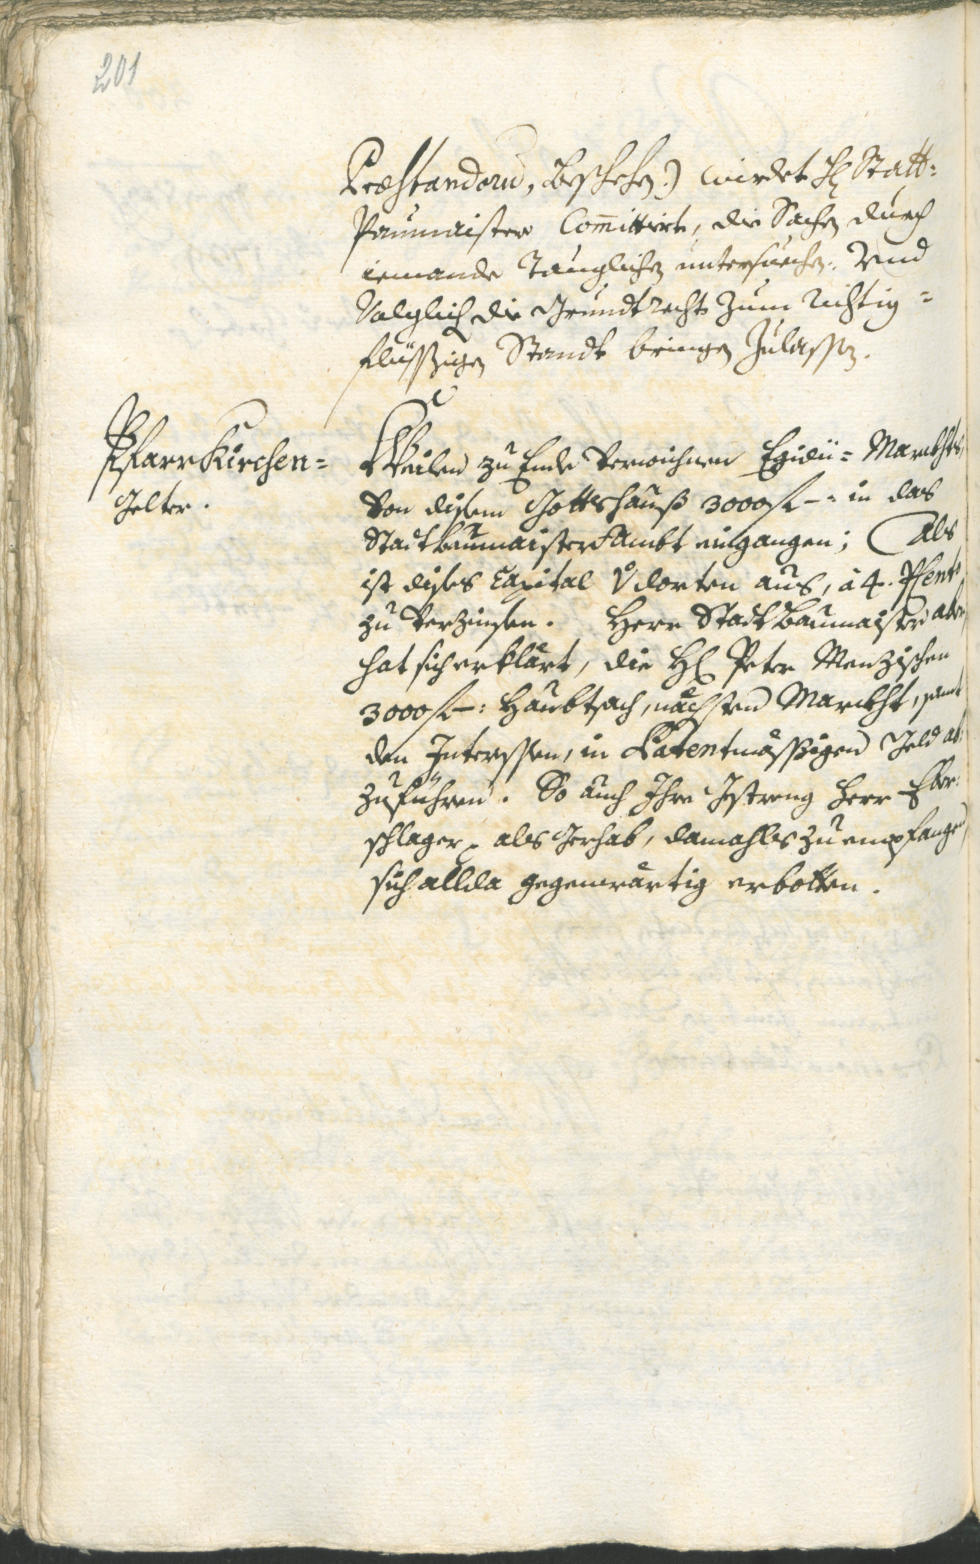 201
Præstandorū, beschehen.) wirdet H: Statt-
Paumaister Committirt, die Sachen durch
iemande Tauglichen untersuechen. Und
Volglich die Grundtrecht zum richtig=
flüssigen Standt bringen Zulassen.
PfarrKirchen=
Gelter.
Weilen zu Ende verwichnen Egidii= Marckhts
von disem Gottshauß 3000 f –: in das
StadtBaumaister Ambt eingangen; Als
ist dises Capital Vdorten aus, à 4. Pcento
zu verzinsen. Herr StadtBaumaister aber
hat sich erklärt, die H: Peter Menzischen
3000 f –: Haubtsach, nächsten Marckht, samt
den Interessen, in Patentmässigen Geld ab=
zuführen. So auch Ihro Gstreng Herr Eber=
schlager, als Gerhab, damahls zu empfangen
sich allda gegenwärtig erbotten.